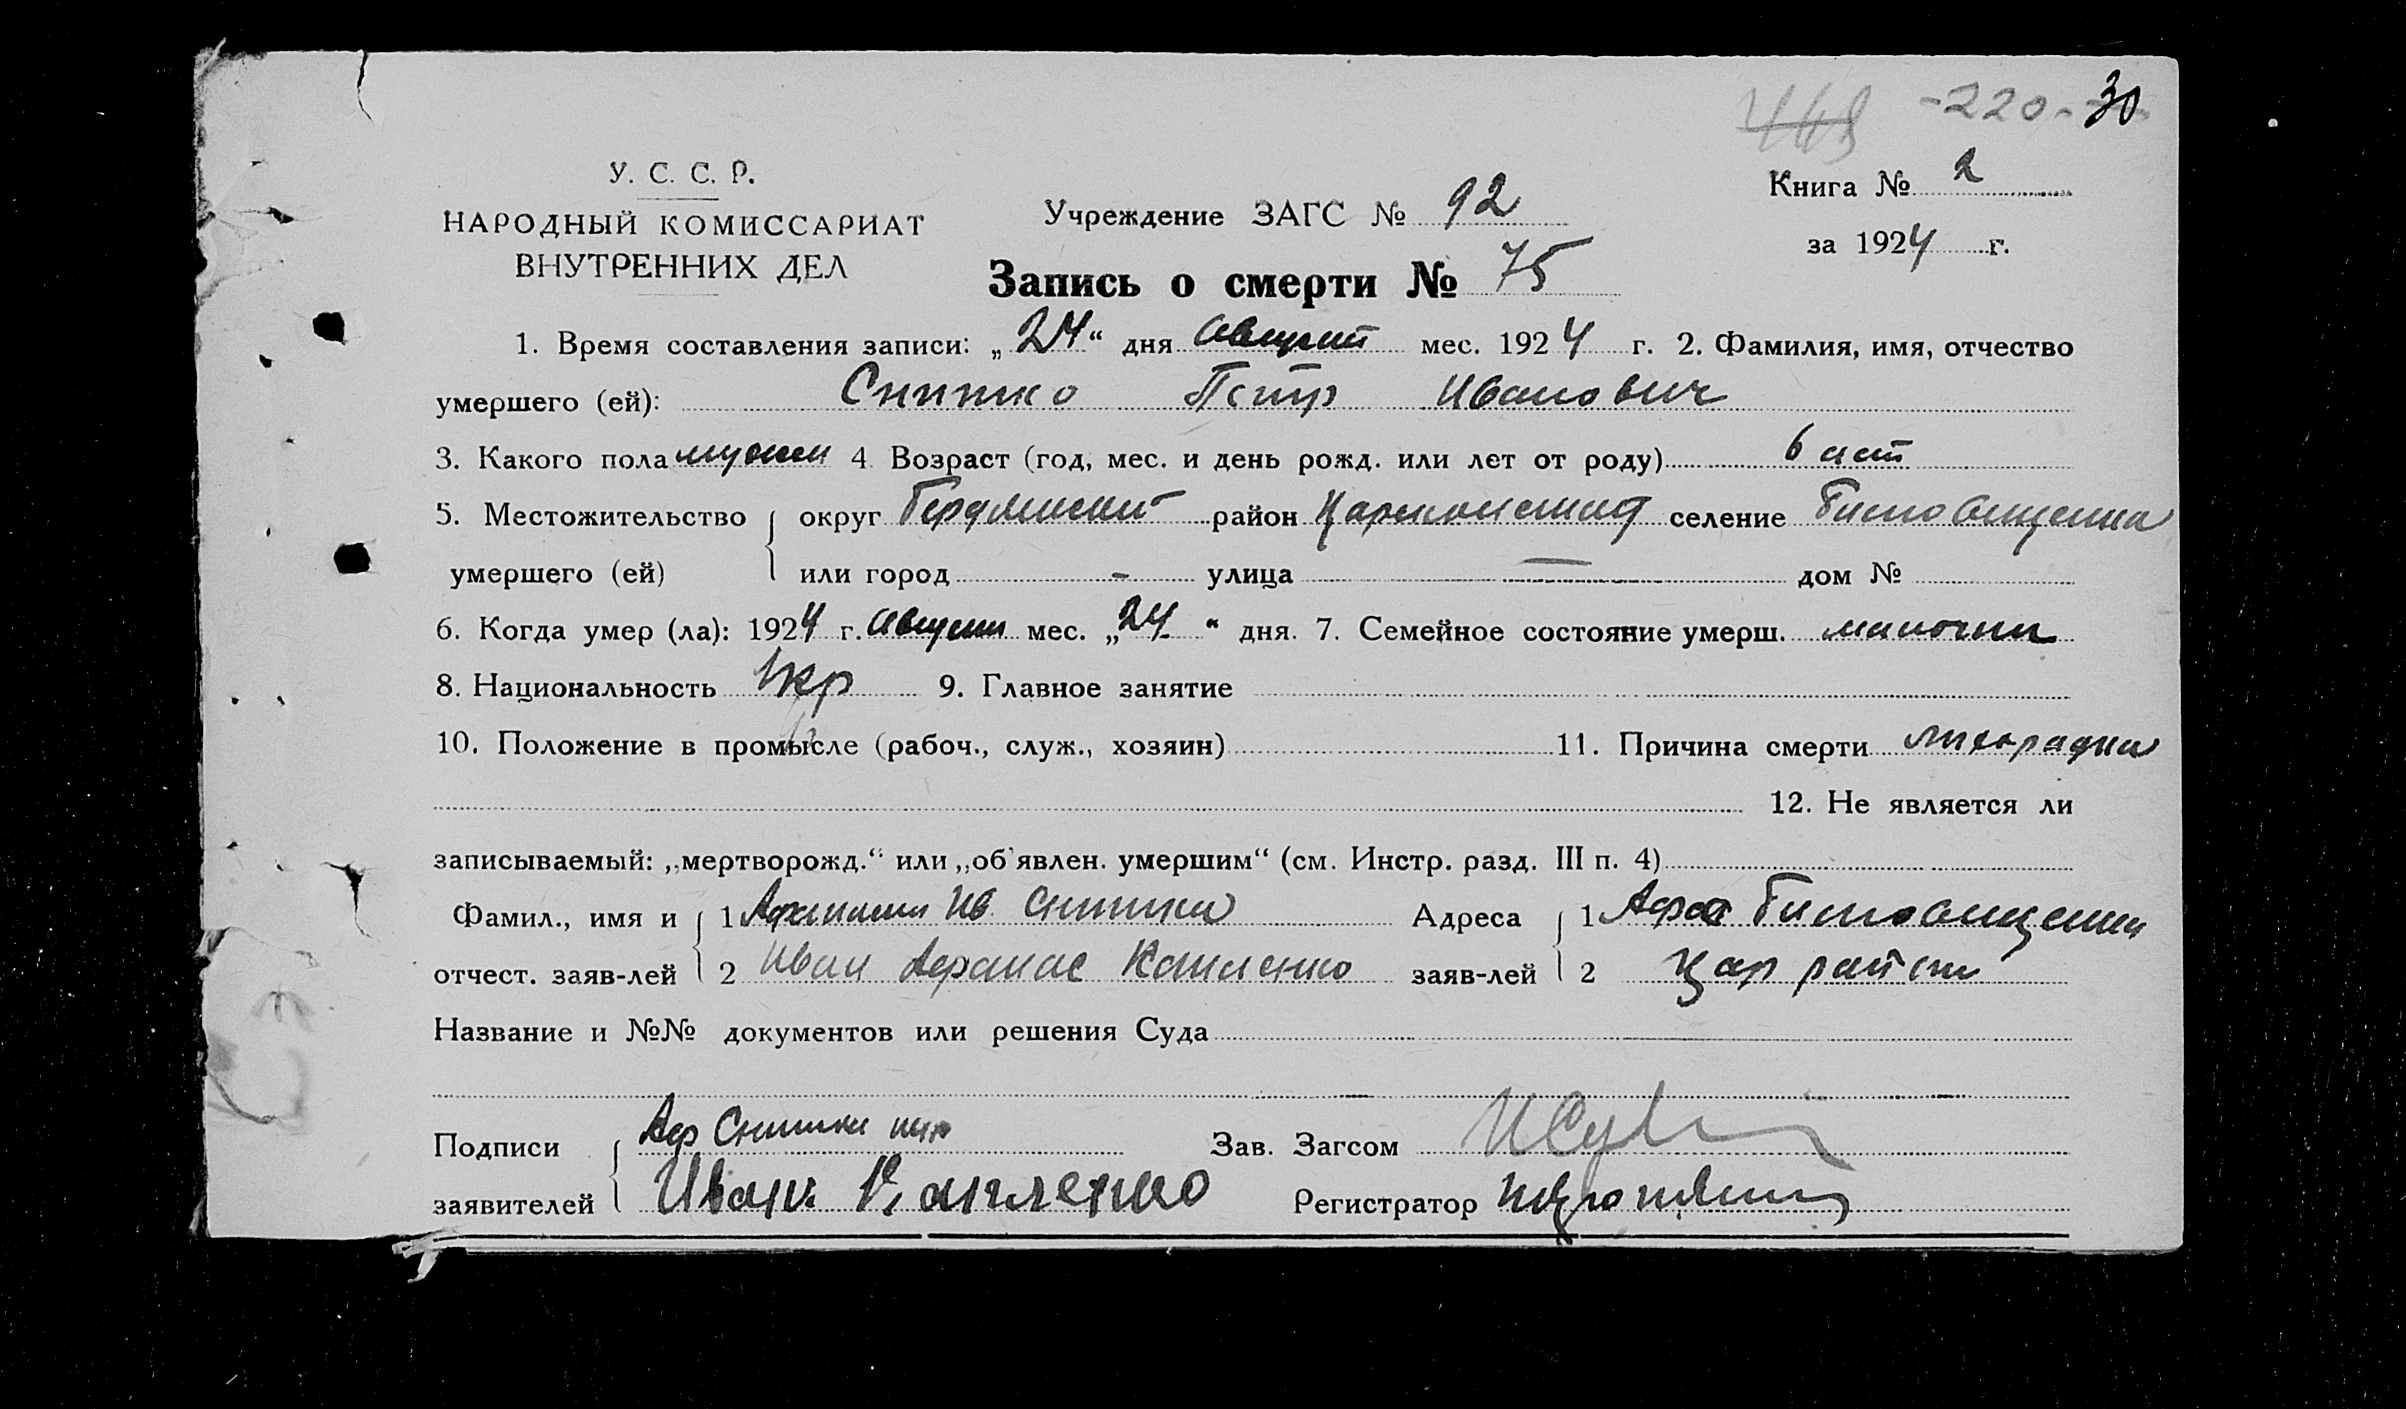 -220- 30
У. С. С. Р.
НАРОДНЫЙ КОМИССАРИАТ
ВНУТРЕННИХ ДЕЛ
Учреждение ЗАГС № 92
Книга № 2
за 1924 г.
Запись о смерти № 75
1. Время составления записи: „24“ дня август мес. 1924 г. 2. Фамилия, имя, отчество
умершего (ей): Снитко Петр Иванович
3. Какого пола мужск 4 Возраст (год, мес. и день рожд. или лет от роду) 6 лет
5. Местожительство округ район селение
умершего (ей) или город - улица — дом №
6. Когда умер (ла): 1924 г. август мес. „24“ дня. 7. Семейное состояние умерш.
8. Национальность Укр 9. Главное занятие
10. Положение в промысле (рабоч., служ., хозяин) 11. Причина смерти лихорадка
12. Не является ли
записываемый: „мертворожд.“ или „об'явлен. умершим“ (см. Инстр. разд. III п. 4)
Фамил., имя и 1 Ив Снитко Адреса 1
отчест. заяв-лей 2 Иван Афанас заяв-лей 2 Цар район
Название и №№ документов или решения Суда
Подписи Аф Снитко Зав. Загсом
заявителей Иван Регистратор